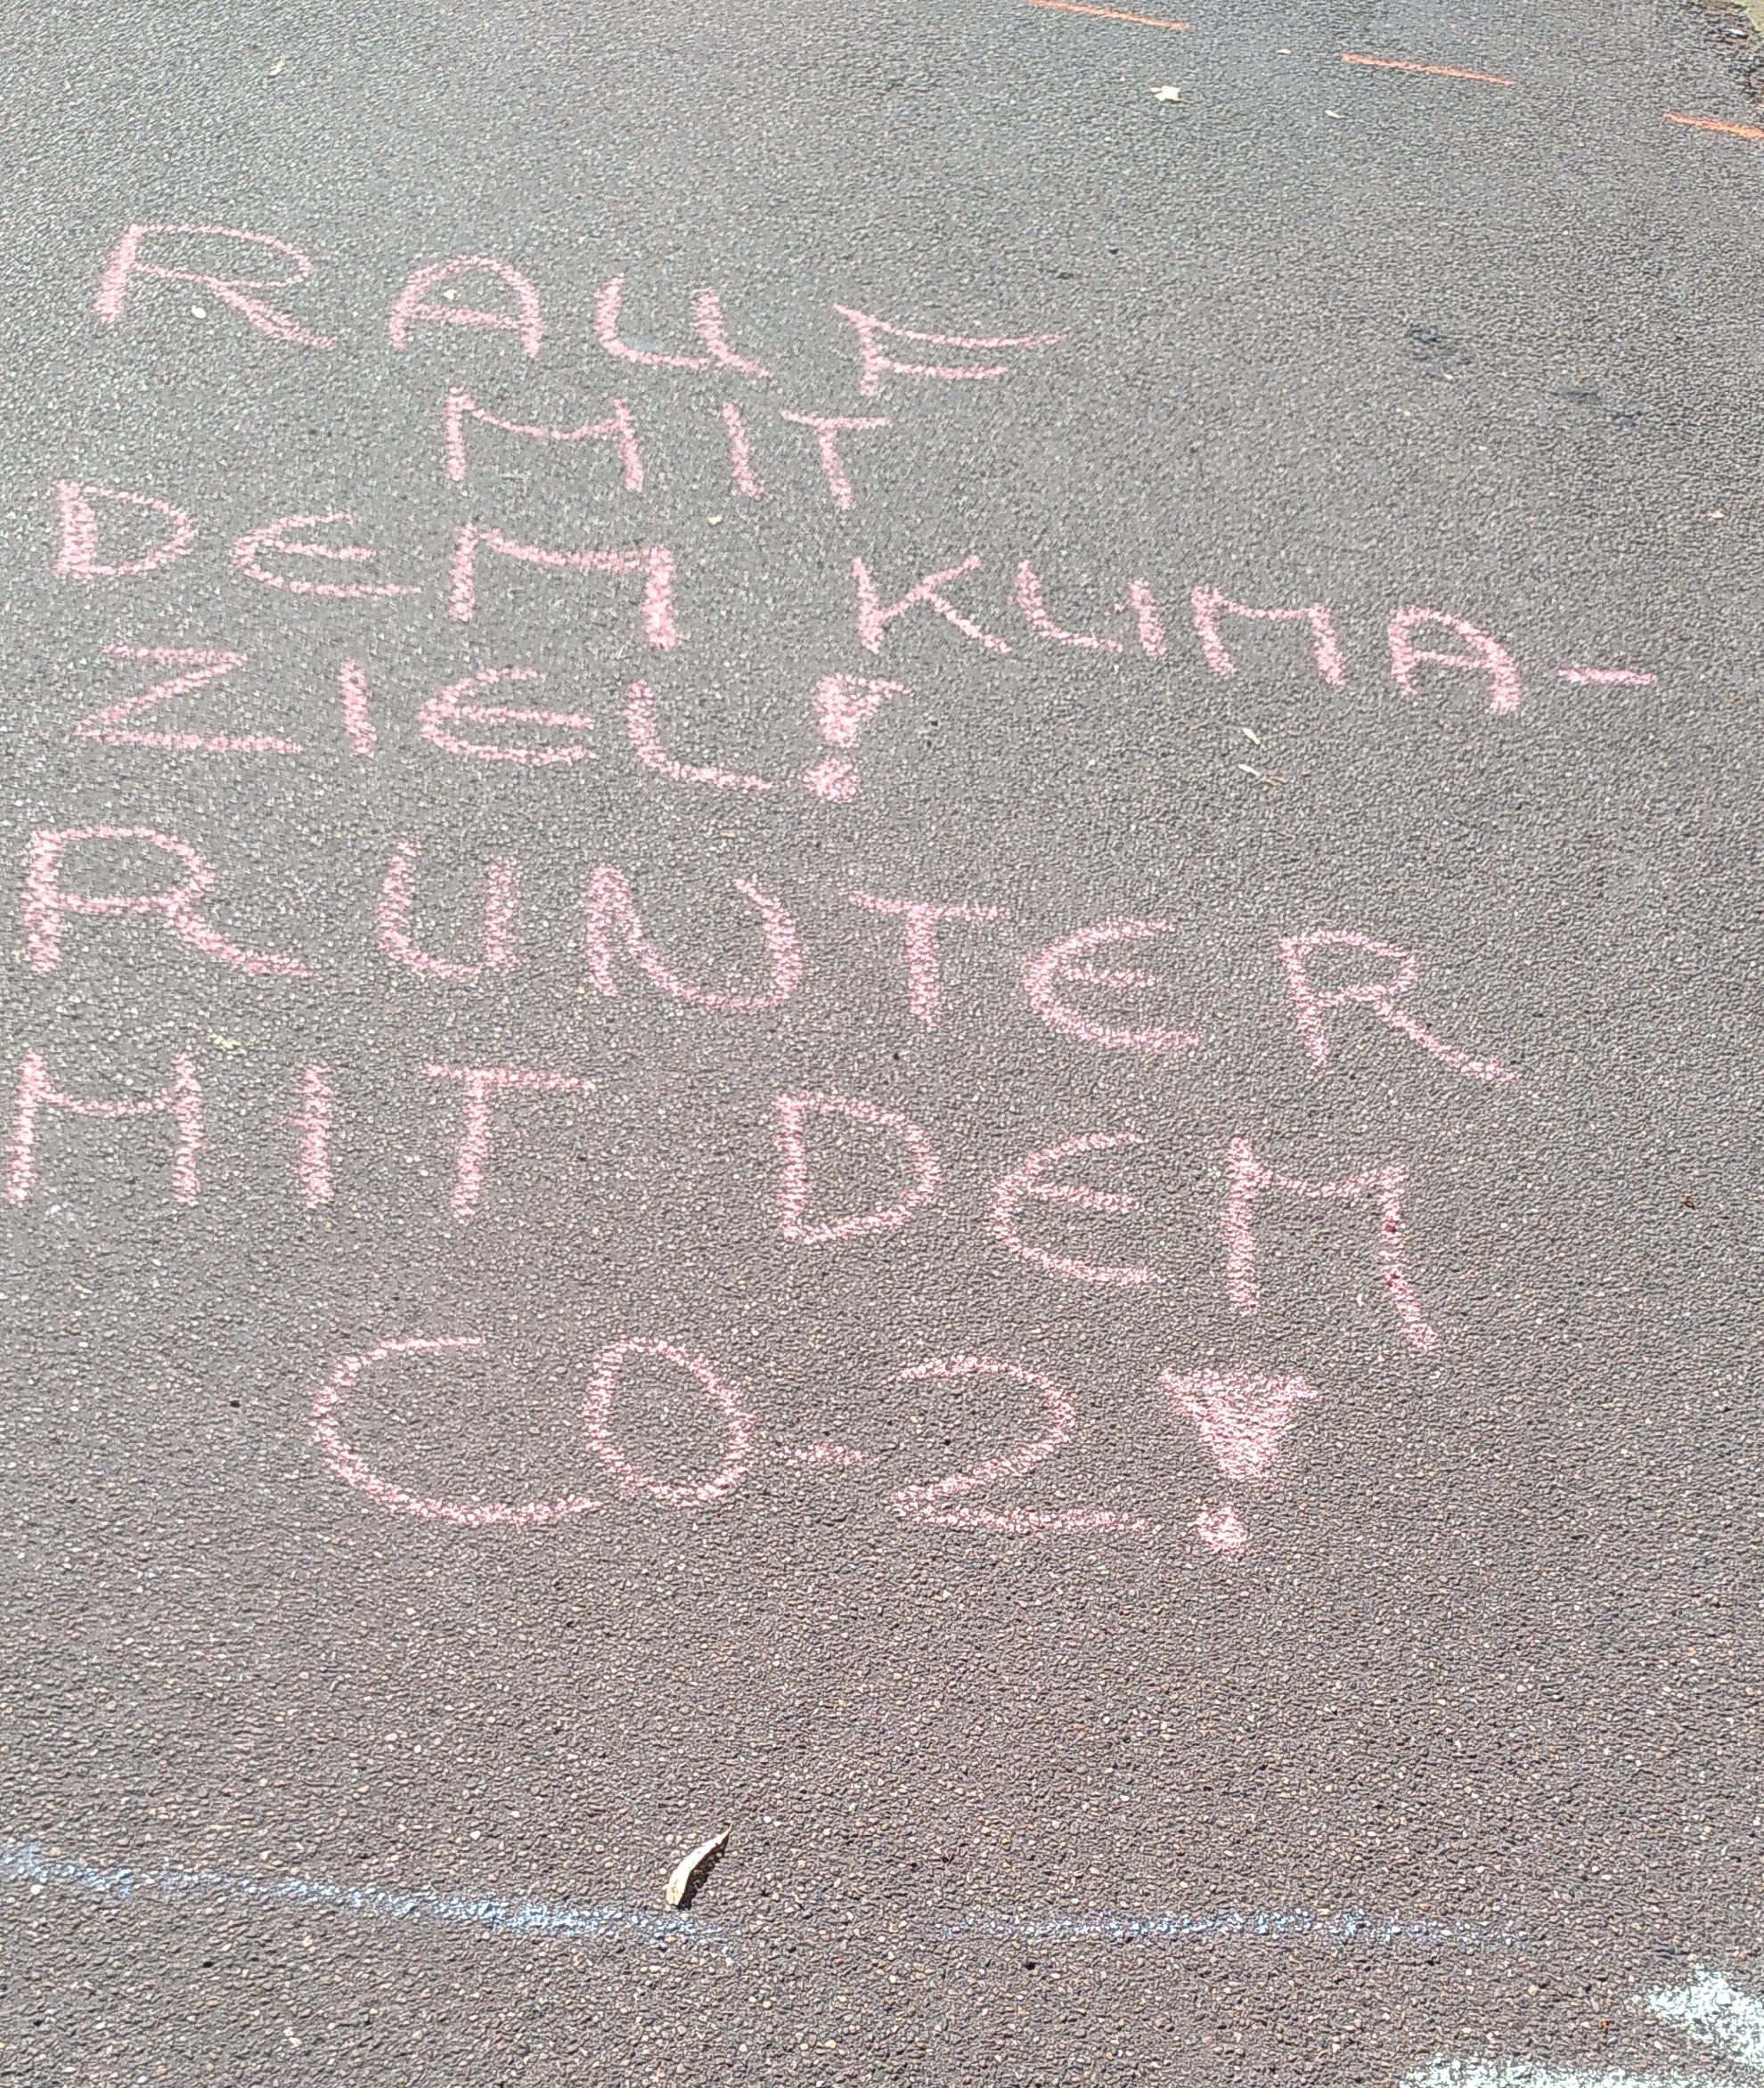 RAUF
MIT
DEM KLIMA-
ZIEL!
RUNTER
MIT DEM
CO-2!